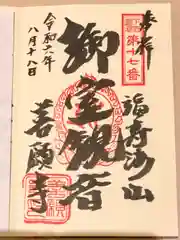 奉拝
第十七番
福寿海山
御室観音
令和六年
八月十八日
善願寺